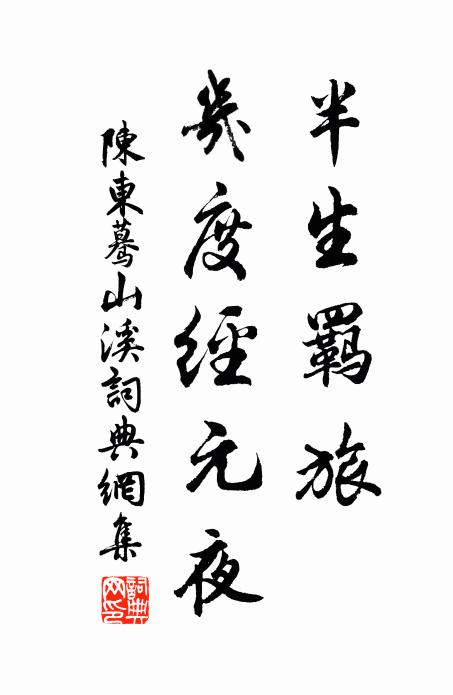 半生羈旅
幾度經元夜
陳東驀山溪詞典網集
詞典網印